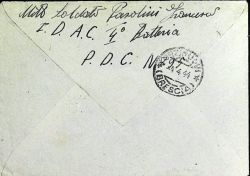 Mitt. Soldato Pasolini Francesco
I. D. A. C. 4° Batteria
P. D. C. N. 97
4.4.44
(BRESCIA)